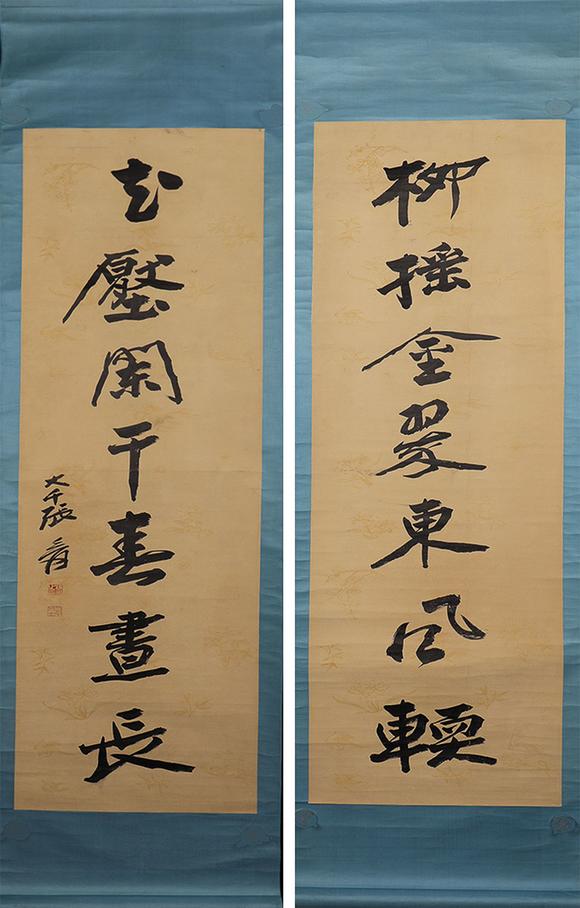 柳搖金翠東風輭
花壓闌干春晝長
大千張爰